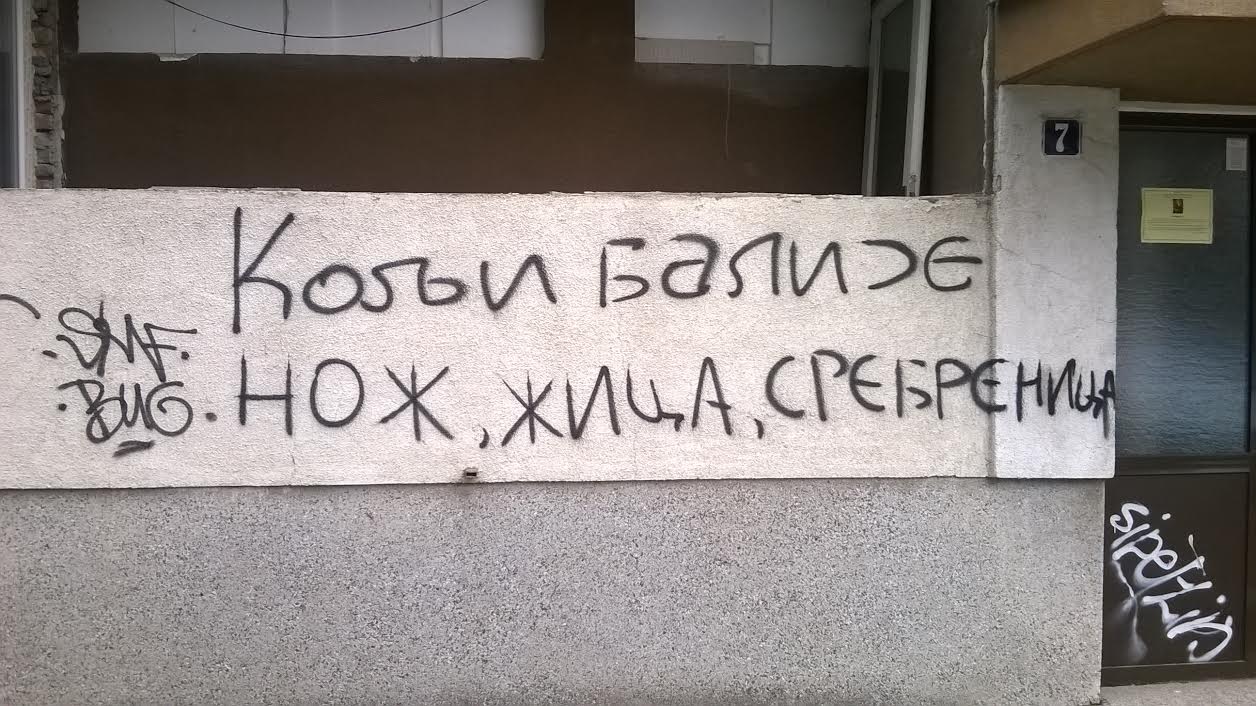 7
Кољи балије
.SMF.
.BUG.
НОЖ, ЖИЦА, СРЕБРЕНИЦА